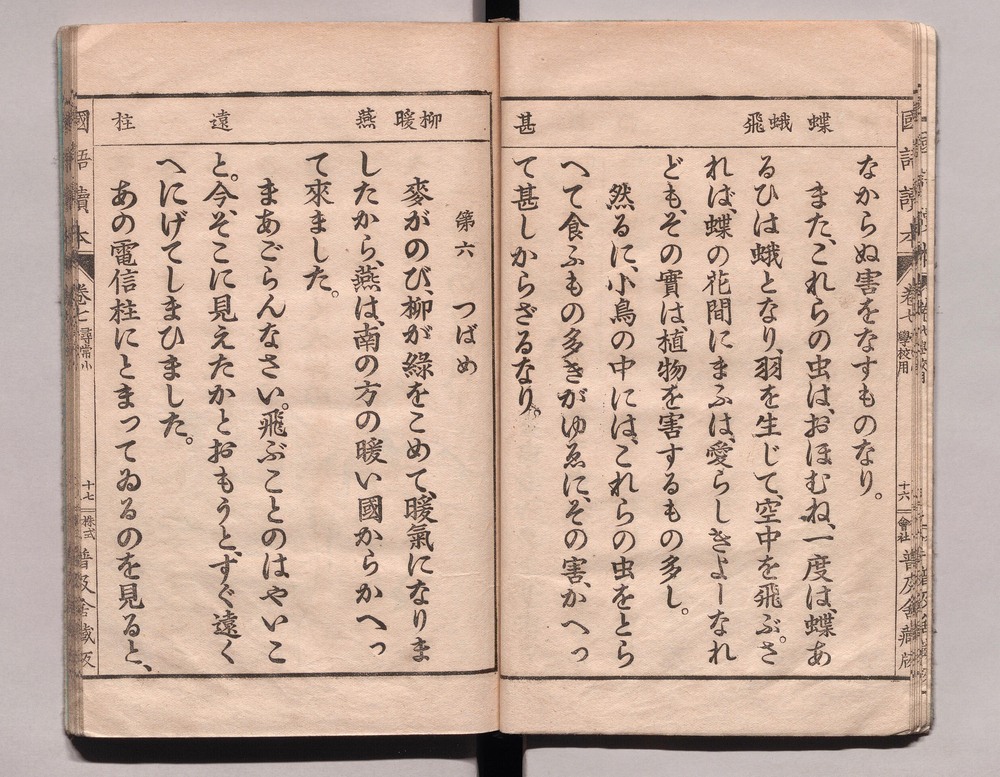 國語讀本
卷七
學校用
十六
會社
普及舍藏版
蝶
蛾
飛
甚
なからぬ害をなすものなり。
また、これらの虫は、おほむね、一度は、蝶あ
るひは蛾となり、羽を生じて、空中を飛ぶ。さ
れば、蝶の花間にまふは、愛らしきよーなれ
ども、その實は、植物を害するもの多し。
然るに、小鳥の中には、これらの虫をとら
へて食ふもの多きがゆゑに、その害、かへっ
て甚しからざるなり。
柳
暖
燕
遠
柱
第六 つばめ
麥がのび、柳が綠をこめて、暖氣になりま
したから、燕は、南の方の暖い國からかへっ
て來ました。
まあごらんなさい。飛ぶことのはやいこ
と。今、そこに見えたかとおもうと、すぐ遠く
へにげてしまひました。
あの電信柱にとまってゐるのを見ると、
國語讀本
卷七
尋常小
十七
株式
普及舍藏版